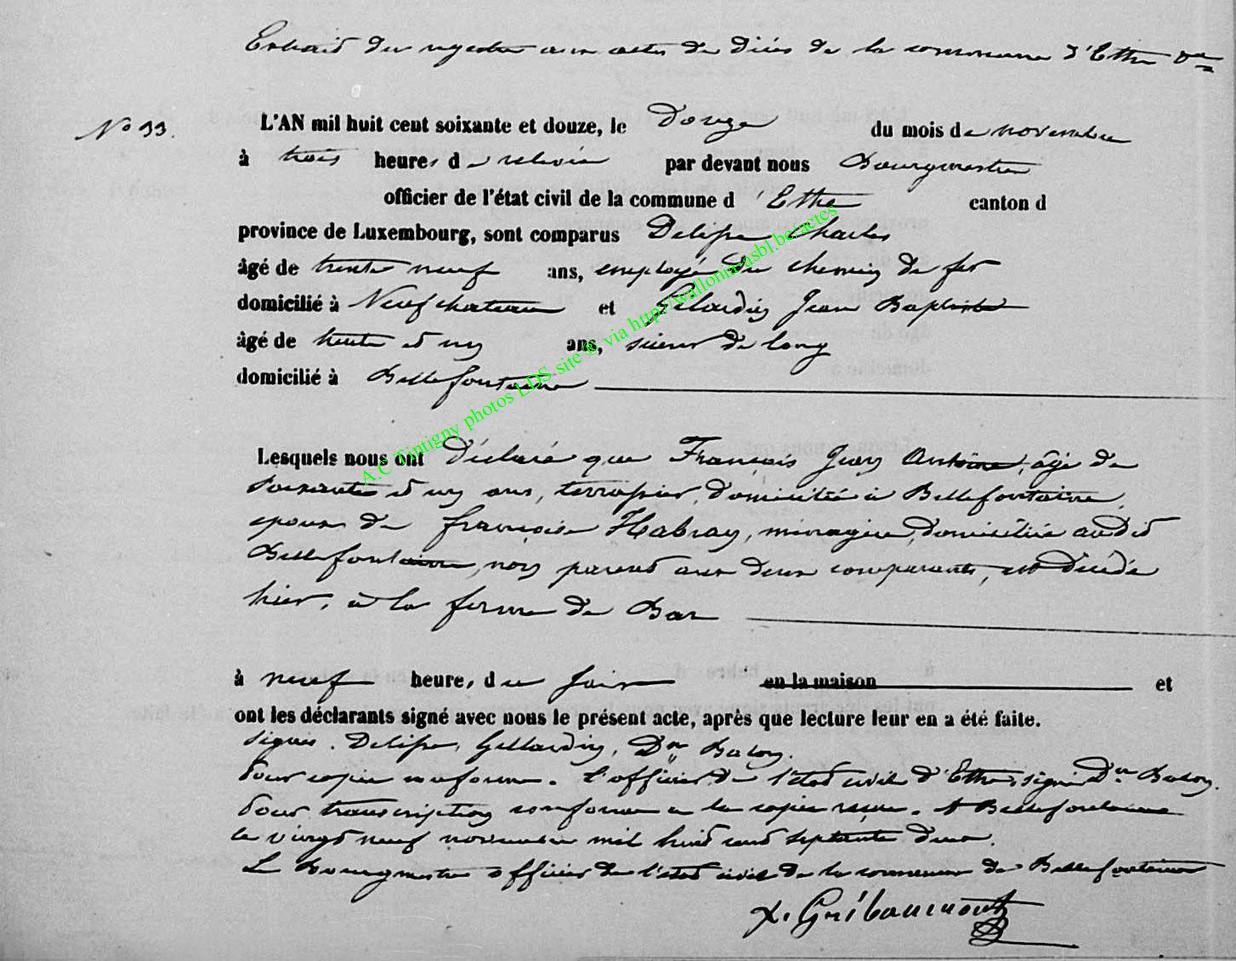 Extrait du registre aux actes de décès de la commune d'Ethe
N° 33.
L'AN mil huit cent soixante et douze, le Douze du mois de novembre
à trois heures de relevée par devant nous Bourgmestre
officier de l'état civil de la commune d'Ethe canton d
province de Luxembourg, sont comparus Delisse Charles
âgé de trente neuf ans, employé du chemin de fer
domicilié à Neufchateau et Gillardin Jean Baptiste
âgé de trente et un ans, scieur de long
domicilié à Bellefontaine
Lesquels nous ont déclaré que François Jean Antoine, âgé de
soixante et un ans, terrassier, domicilié à Bellefontaine,
epoux de françoise Habray, ménagère, domiciliée audit
Bellefontaine, non parent aux deux comparants, est décédé
hier, à la ferme de Bar
à neuf heures du soir en la maison et
ont les déclarants signé avec nous le présent acte, après que lecture leur en a été faite.
signés. Delisse, Gillardin, Dn Balon.
Pour copie conforme. L'officier de l'état civil d'Ethe signé Dn Balon.
Pour transcription conforme à la copie reçue. A Bellefontaine
le vingt neuf novembre mil huit cent septante deux.
Le Bourgmestre officier de l'état civil de la commune de Bellefontaine
X. Gribaumont
A.C Tintigny photos LDS site © via http://wallonica.asbl.be/actes